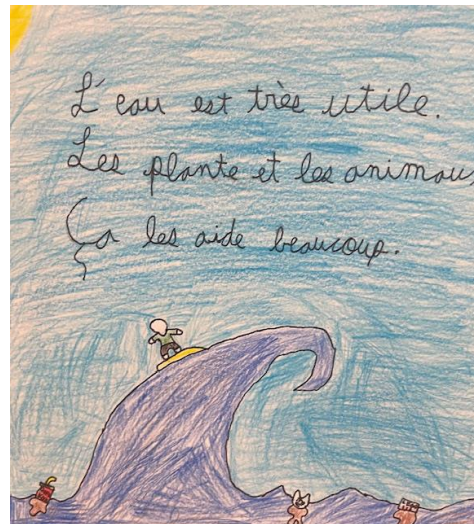 L'eau est très utile.
Les plante et les animau
Ça les aide beaucoup.